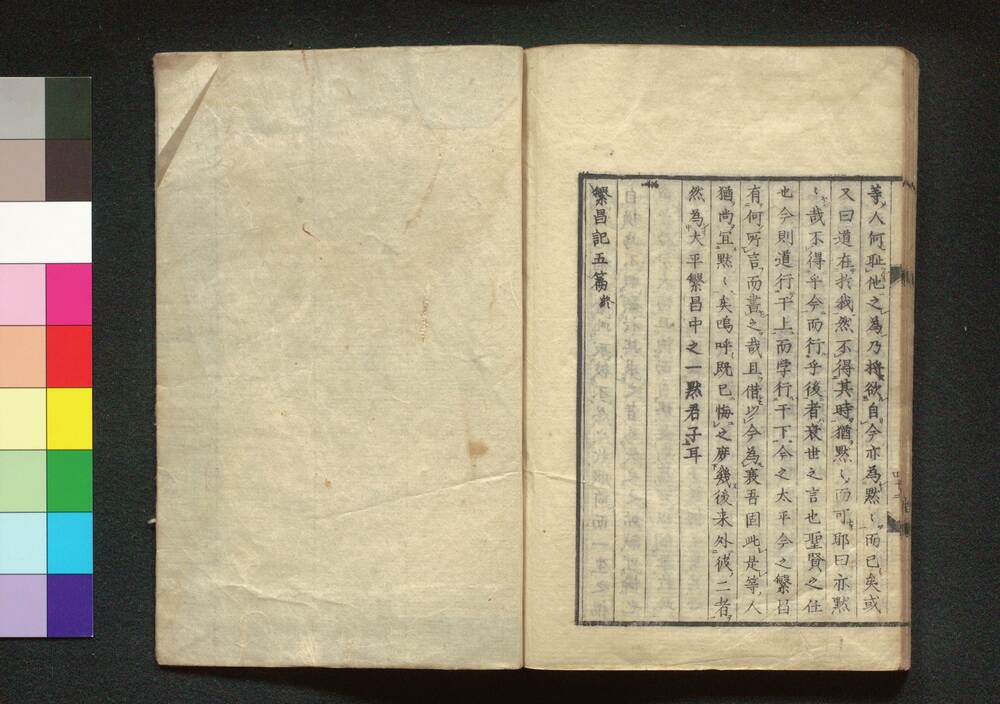 等人何耻他之為乃將欲自今亦為黙〻而已矣或
又曰道在於我然不得其時猶黙〻而可耶曰亦黙
〻哉不得乎今而行乎後者衰世之言也聖賢之任
也今則道行于上而学行于下今之太平今之繁昌
有何所言而畫之哉且借以今為衰吾固此是等人
猶尚宜黙〻矣嗚呼既已悔之庶幾後来外彼二者
然為大平繁昌中之一黙君子耳
繁昌記五篇終